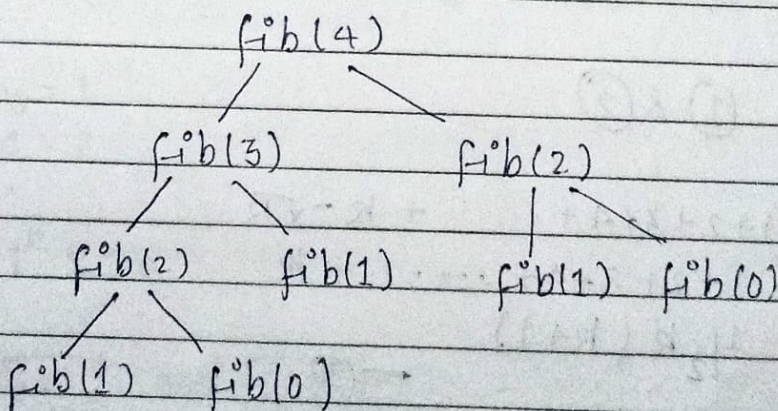 fib(4)
fib(3) fib(2)
fib(2) fib(1) fib(1) fib(0)
fib(1) fib(0)